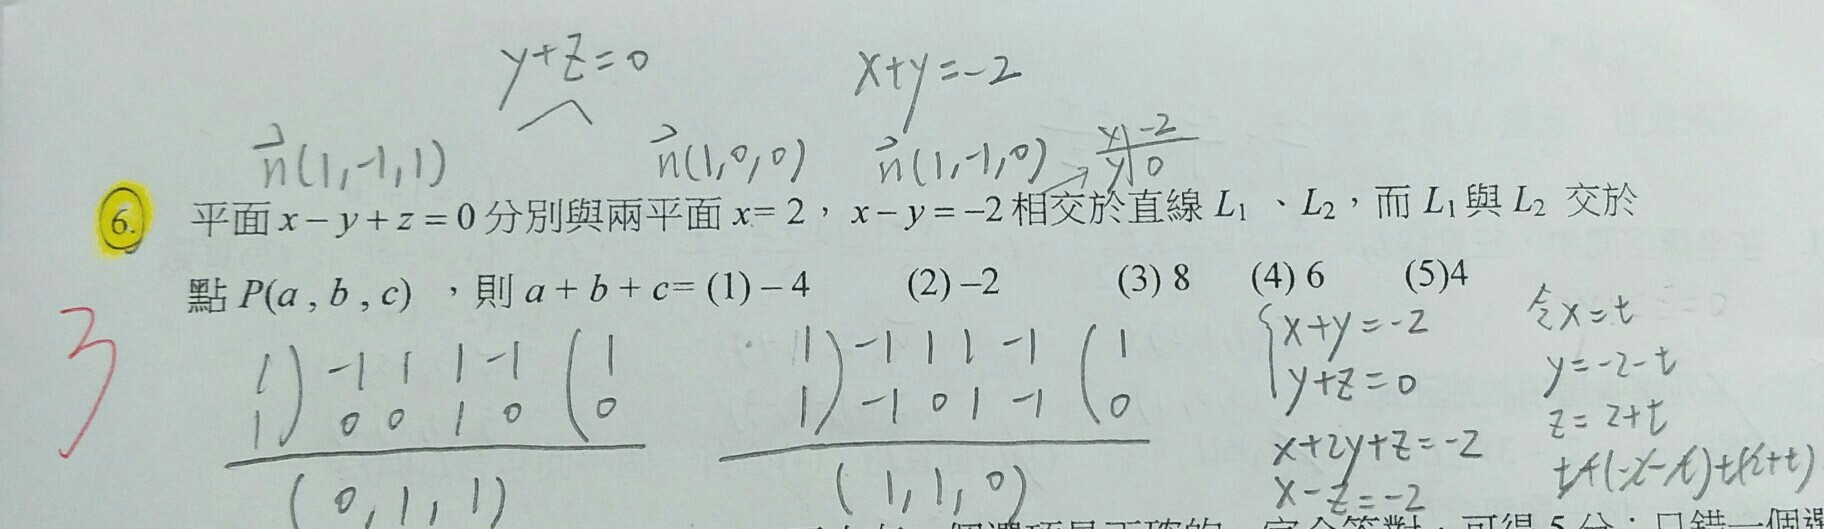 y+z=0 x+y=-2
n(1,-1,1) n(1,0,0) n(1,-1,0) x -2
y 0
6. 平面 x – y + z = 0 分別與兩平面 x= 2，x – y = –2 相交於直線 L1 、L2，而 L1 與 L2 交於
點 P(a , b , c) ，則 a + b + c= (1) – 4 (2) –2 (3) 8 (4) 6 (5)4
3
1 -1 1 1 -1 1
1 0 0 1 0 0
(0,1,1)
1 -1 1 1 -1 1
1 -1 0 1 -1 0
(1,1,0)
x+y=-2
y+z=0
x+2y+z=-2
x-z=-2
令x=t
y=-2-t
z=2+t